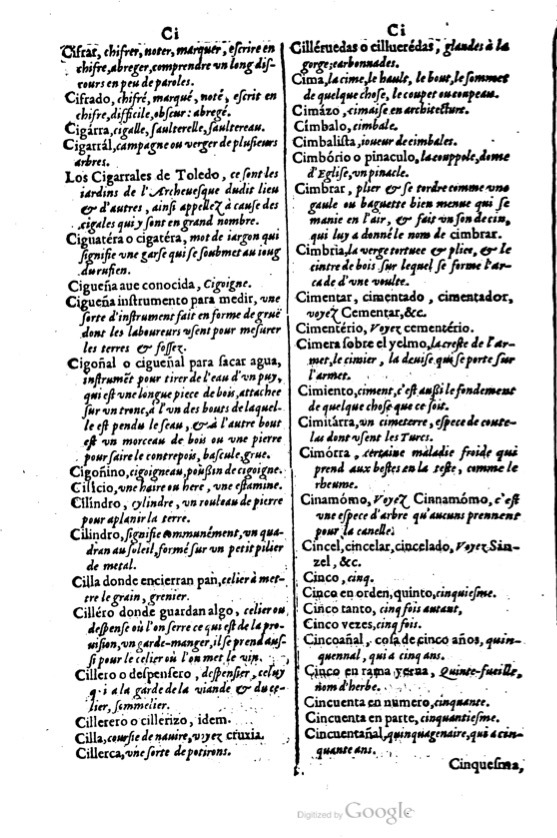 Ci
Cifrar, chifrer, noter, marquer, escrire en
chifre, abreger, comprendre un long dis-
cours en peu de paroles.
Cifrado, chifré, marqué, noté, escrit en
chifre, difficile, obscur: abregé.
Cigárra, cigalle, saulterelle, saultereau.
Cigarrál, campagne ou verger de plusieurs
arbres.
Los Cigarrales de Toledo, ce sont les
iardins de l'Archeuesque dudit lieu
& d'autres, ainsi appellez à cause des
cigales qui y sont en grand nombre.
Ciguatéra o cigatéra, mot de iargon qui
signifie une garse qui se soubmet au ioug
du rufien.
Cigueña aue conocida, Cigoigne.
Cigueña instrumento para medir, une
sorte d'instrument fait en forme de gruë
dont les laboureurs usent pour mesurer
les terres & fossez.
Cigoñal o cigueñal para sacar agua,
instrumẽt pour tirer de l'eau d'un puy,
qui est une longue piece de bois, attachee
sur un tronc, à l'un des bouts de laquel-
le est pendu le seau, & à l'autre bout
est un morceau de bois ou une pierre
pour faire le contrepois, bascule, grue.
Cigoñino, cigoigneau, poussin de cigoigne.
Cilicio, une haire ou here, une estamine.
Cilindro, cylindre, un rouleau de pierre
pour aplanir la terre.
Cilindro, signifie communément, un qua-
dran au soleil, formé sur un petit pilier
de metal.
Cilla donde encierran pan, celier à met-
tre le grain, grenier.
Cilléro donde guardan algo, celier ou
despense où l'on serre ce qui est de la pro-
uision, un garde-manger, il se prend aus-
si pour le celier où l'on met le vin.
Cillero o despensero, despensier, celuy
q.i a la garde de la viande & du ce-
lier, sommelier.
Cillerero o cillerizo, idem.
Cilla, coursie de nauire, voyez cruxia.
Cillerca, une sorte de potirons.
Ci
Cilléruedas o cilluerédas, glandes à la
gorge; carbonnades.
Cima, la cime, le hault, le bout, le sommet
de quelque chose, le coupet ou coupeau.
Cimázo, cimaise en architecture.
Címbalo, cimbale.
Cimbalista, ioueur de cimbales.
Cimbório o pinaculo, la couppole, dome
d'Eglise, un pinacle.
Cimbrar, plier & se tordre comme une
gaule ou baguette bien menue qui se
manie en l'air, & fait un son de cin,
qui luy a donné le nom de cimbrar.
Cimbria, la verge tortuee & pliee, & le
cintre de bois sur lequel se forme l'ar-
cade d'une voulte.
Cimentar, cimentado, cimentador,
voyez Cementar, &c.
Cimentério, Voyez cementério.
Cimera sobre el yelmo, la creste de l'ar-
met, le cimier, la deuise qui se porte sur
l'armet.
Cimiento, ciment, c'est aussi le fondement
de quelque chose que ce soit.
Cimitárra, un cimeterre, espece de coute-
las dont usent les Turcs.
Cimórra, certaine maladie froide qui
prend aux bestes en la teste, comme le
rheume.
Cinamómo, Voyez Cinnamómo, c'est
une espece d'arbre qu'aucuns prennent
pour la canelle.
Cincel, cincelar, cincelado, Voyez Sin-
zel, &c.
Cinco, cinq.
Cinco en orden, quinto, cinquiesme.
Cinco tanto, cinq fois autant,
Cinco vezes, cinq fois.
Cincoañal, cosa de cinco años, quin-
quennal, qui a cinq ans.
Cinco en rama yerua, Quinte-fueille,
nom d'herbe.
Cincuenta en numero, cinquante.
Cincuenta en parte, cinquantiesme.
Cincuentañal, quinquagenaire, qui a cin-
quante ans.
Cinquesma,
Digitized by Google